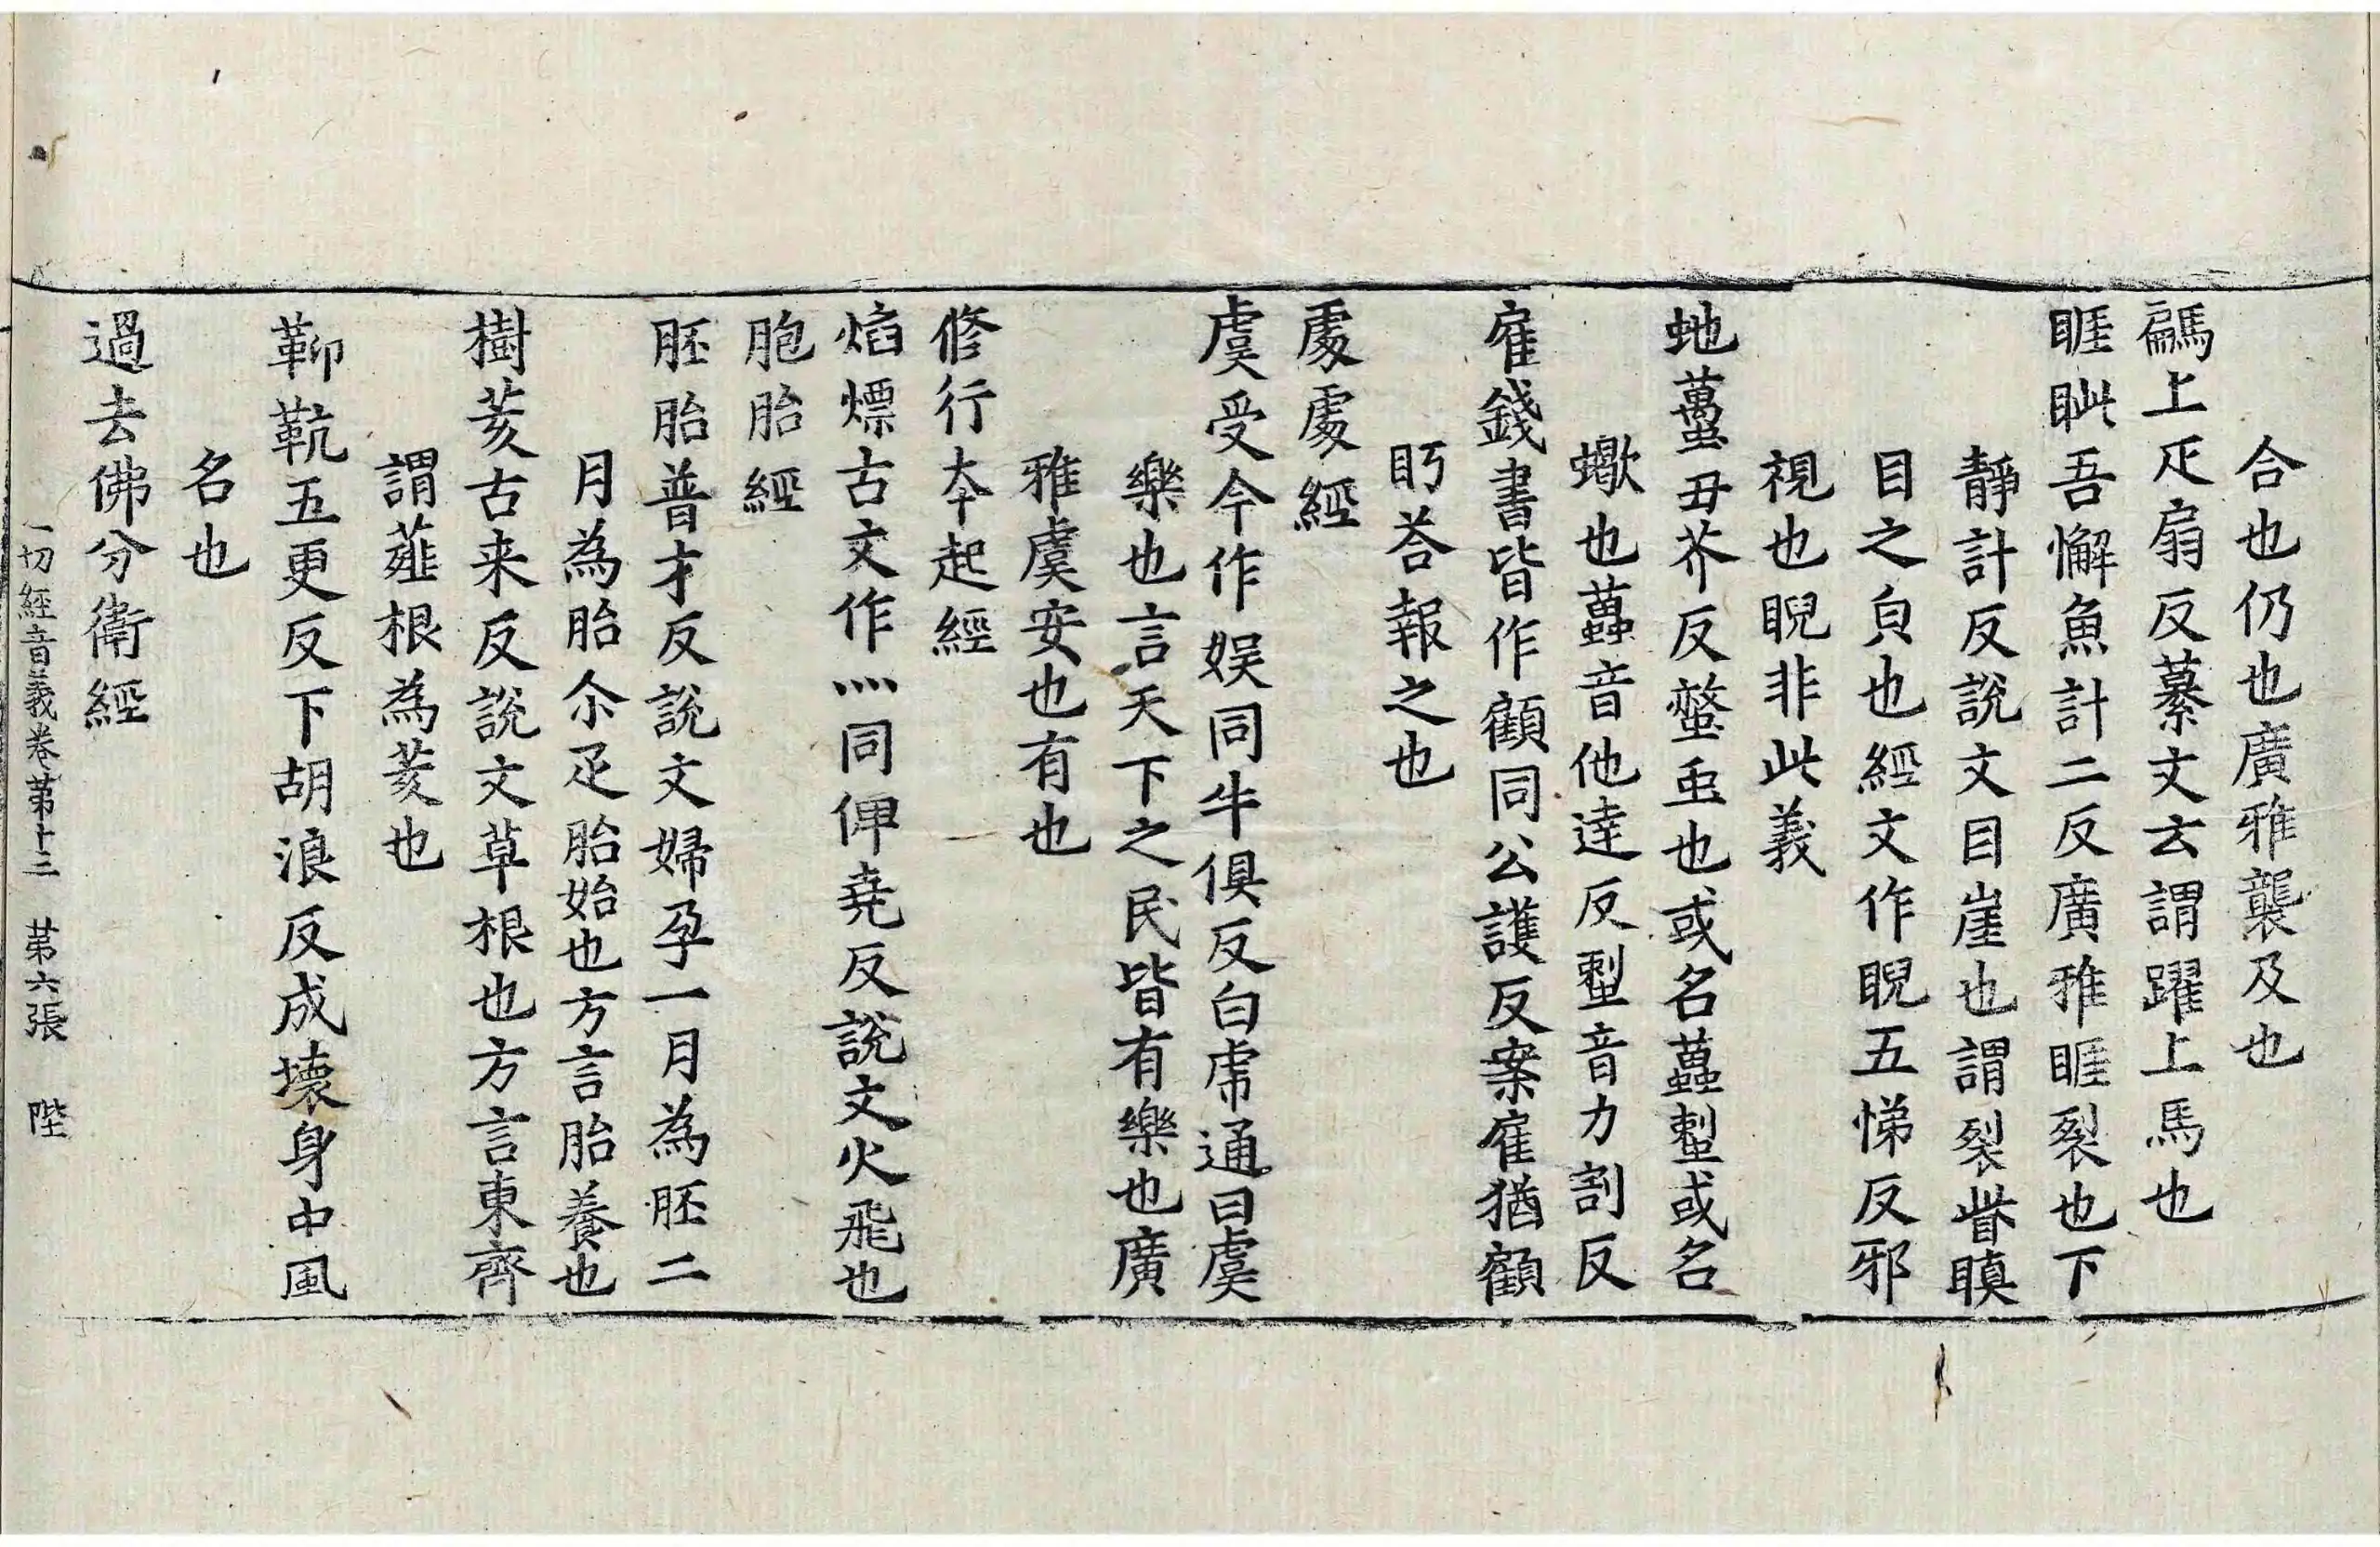 合也仍也廣雅襲及也
騗上疋扇反纂文云謂躍上馬也
睚眦吾懈魚計二反廣雅睚裂也下
靜計反說文目崖也謂裂眥瞋
目之皃也經文作睨五悌反邪
視也睨非此義
虵蠆丑芥反螫䖝也或名䘍𧍠或名
蠍也䘍音他達反𧍠音力割反
雇錢書皆作顧同公護反案雇猶顧
眄荅報之也
處處經
虞受今作娱同牛俱反白虎通曰虞
樂也言天下之民皆有樂也廣
雅虞安也有也
修行夲起經
焰熛古文作灬同俾堯反說文火飛也
胞胎經
胚胎普才反說文婦孕一月為胚二
月為胎尒疋胎始也方言胎養也
樹荄古来反說文草根也方言東齊
謂薤根為荄也
䩕䩑五更反下胡浪反成壊身中風
名也
過去佛分衛經
一切經音義卷苐十三　苐六張　陛